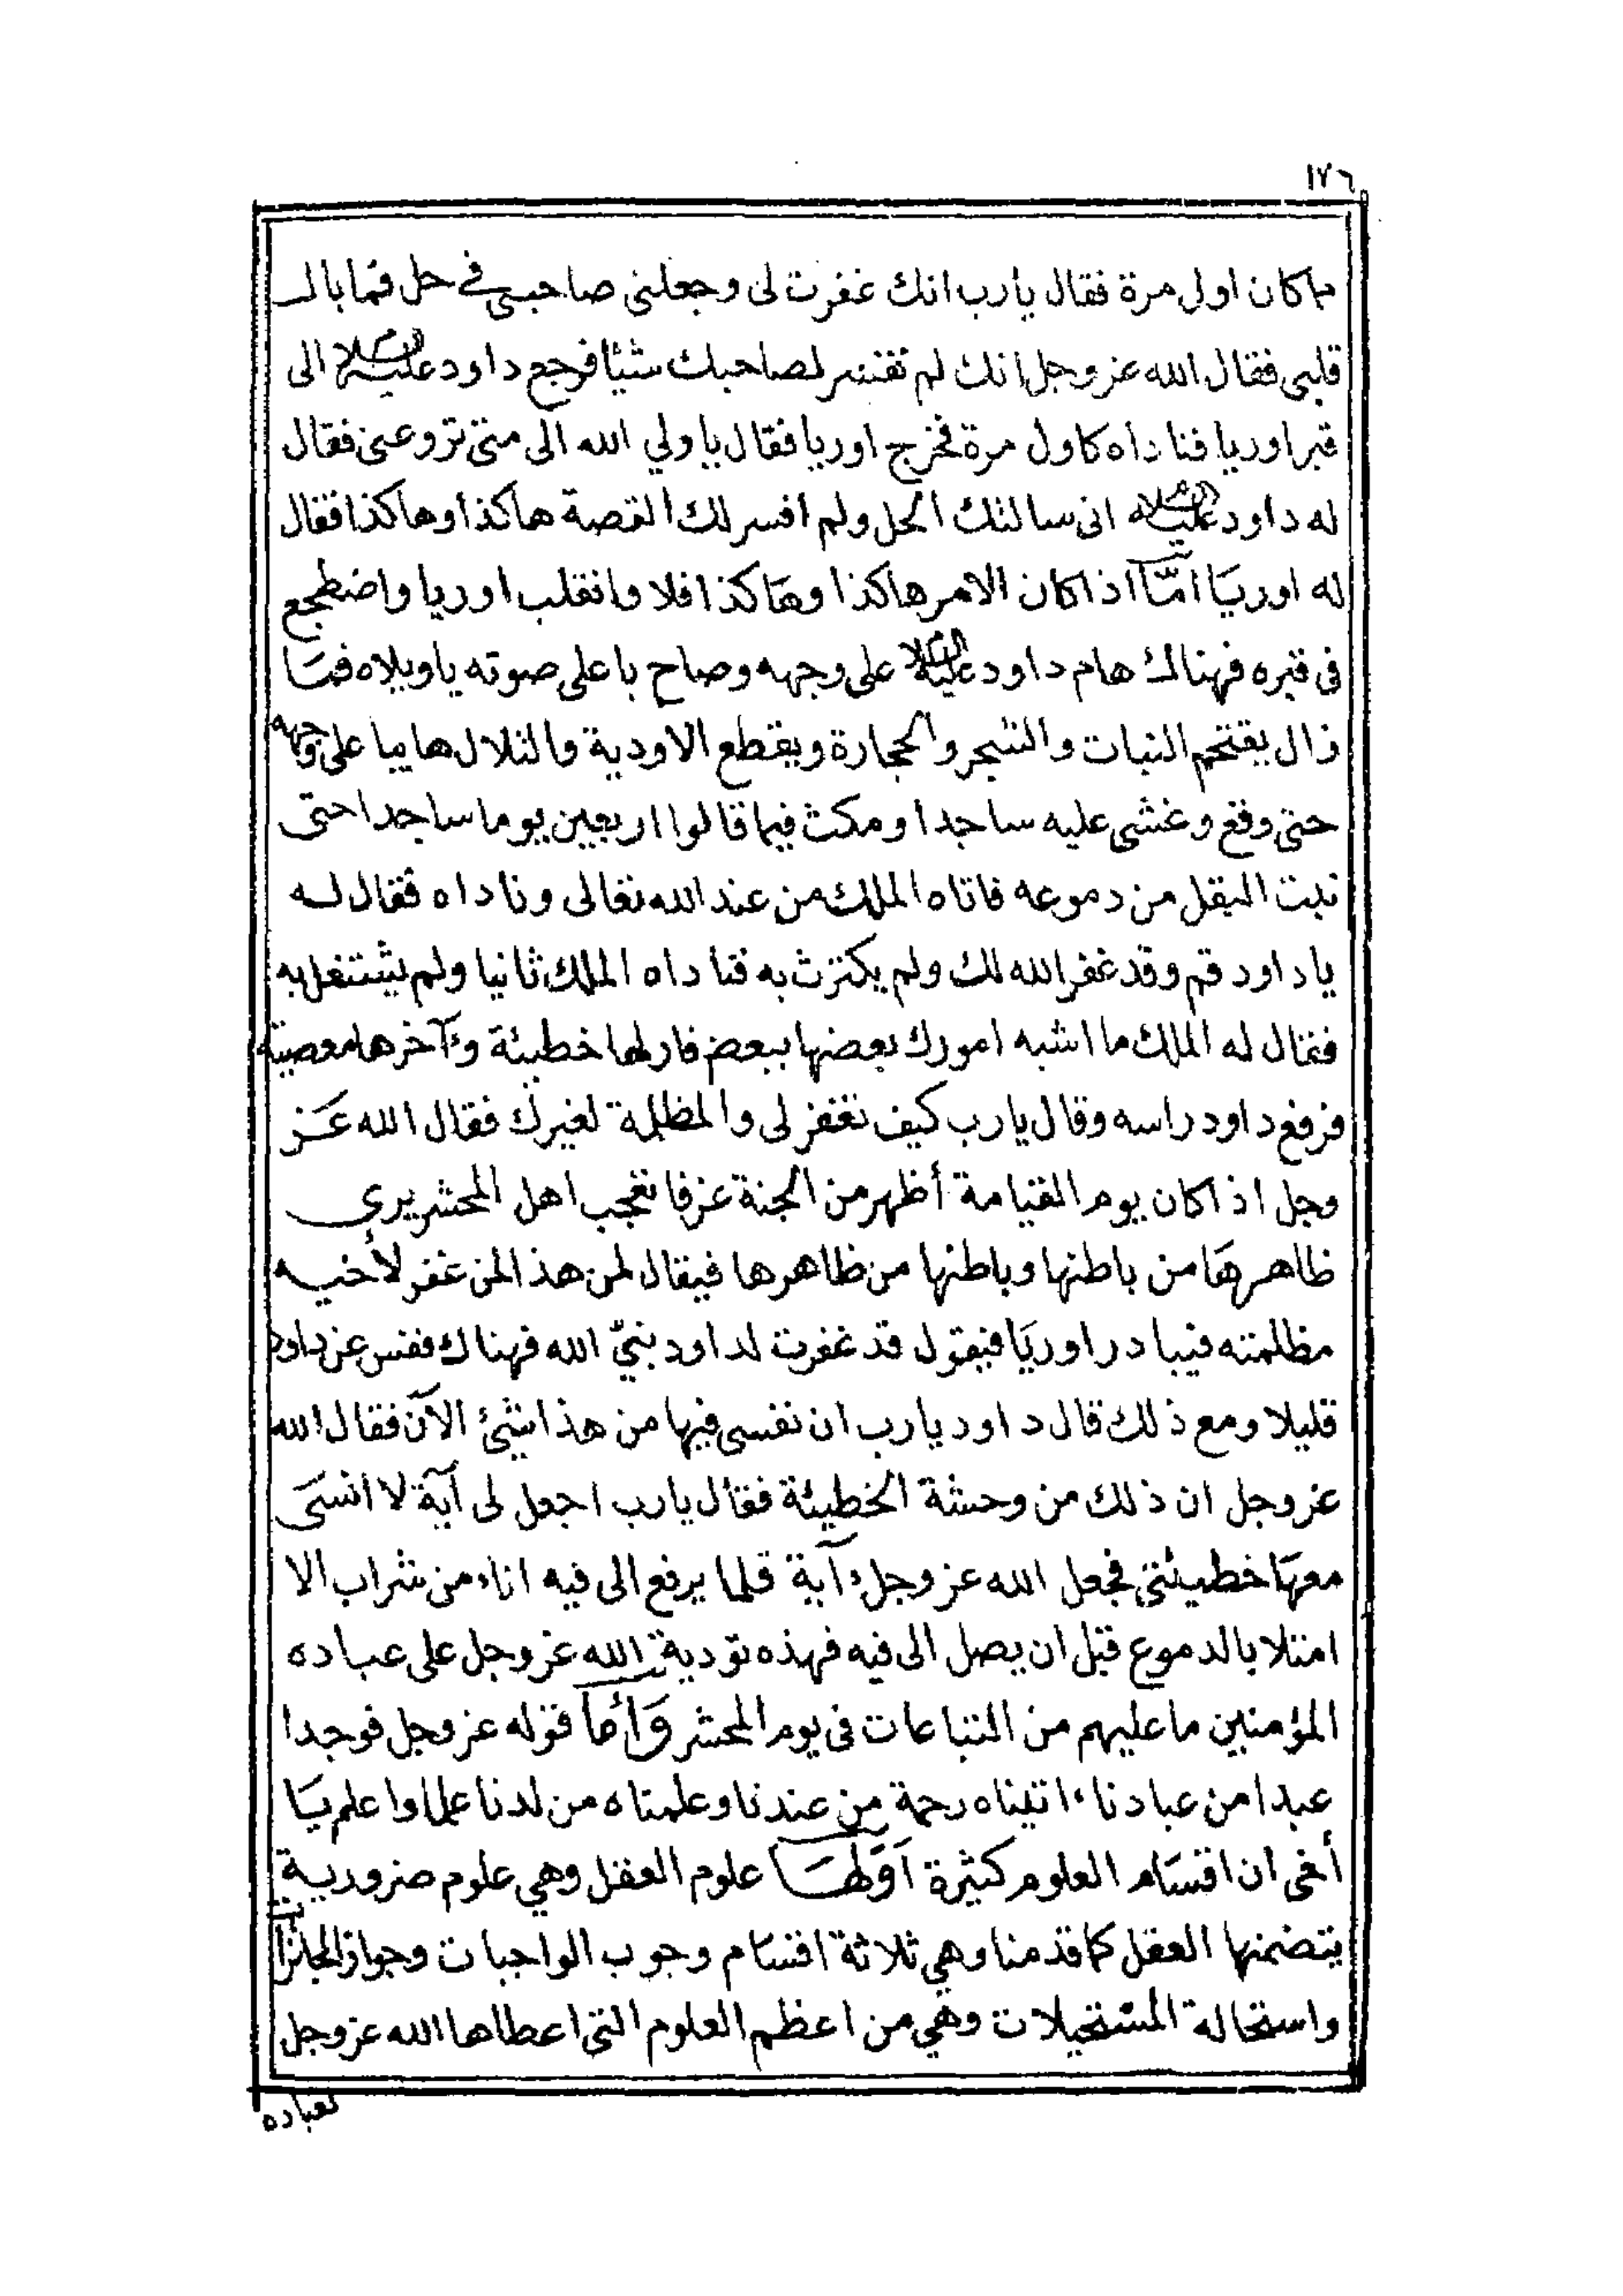 ١٧٦
مما كان اول مرة فقال يارب انك غفرت لى وجعلنى صاحبى فى حل فما بال
قلبى فقال الله عز وجل انك لم تفسر لصاحبك شيئا فرجع داود عليه السلام الى
قبر اوريا فناداه كاول مرة فخرج اوريا فقال يا ولي الله الى متى تروعنى فقال
له داود عليه السلام انى سالتك الحل ولم افسر لك القصة هاكذا وهاكذا فقال
له اوريا امّا اذا كان الامر هاكذا وهاكذا فلا وانقلب اوريا واضطجع
فى قبره فهنالك هام داود عليه السلام على وجهه وصاح باعلى صوته ياويلاه فما
زال يقتحم النبات والشجر والحجارة ويقطع الاودية والتلال هايبا على وجهه
حتى وقع وغشى عليه ساجدا ومكث فيما قالوا اربعين يوما ساجدا حتى
نبت البقل من دموعه فاتاه الملك من عند الله تعالى وناداه فقال له
يا داود قم وقد غفر الله لك ولم يكترث به فناداه الملك ثانيا ولم يشتغل به
فقال له الملك ما اشبه امورك بعضها ببعض فاولها خطيئة وءآخرها معصية
فرفع داود راسه وقال يارب كيف تغفر لى والمظلمة لغيرك فقال الله عَز
وجل اذا كان يوم القيامة أظهر من الجنة غرفا تعجب اهل المحشر يرى
ظاهرها من باطنها وباطنها من ظاهرها فيقال لمن هذا لمن غفر لأخيه
مظلمته فيبادر اوريا فيقول قد غفرت لداود نبيّ الله فهناك ففس عن داود
قليلا ومع ذلك قال داود يارب ان نفسى فيها من هذا شئ الآن فقال الله
عز وجل ان ذلك من وحشة الخطيئة فقال يارب اجعل لى آية لا انسَى
معها خطيئتى فجعل الله عز وجل ءآية قلما يرفع الى فيه اناء من شراب الا
امتلا بالدموع قبل ان يصل الى فيه فهذه تودية الله عز وجل على عباده
المؤمنين ما عليهم من التباعات فى يوم المحشر وَأما قوله عز وجل فوجدا
عبدا من عبادنا ءاتيناه رحمة من عندنا وعلمناه من لدنا علما واعلم يا
أخى ان اقسام العلوم كثيرة اوَلها علوم العقل وهي علوم ضرورية
يتضمنها العقل كما قدمنا وهي ثلاثة اقسام وجوب الواجبات وجواز الجائزات
واستحالة المستحيلات وهي من اعظم العلوم التى اعطاها الله عز وجل
لعباده